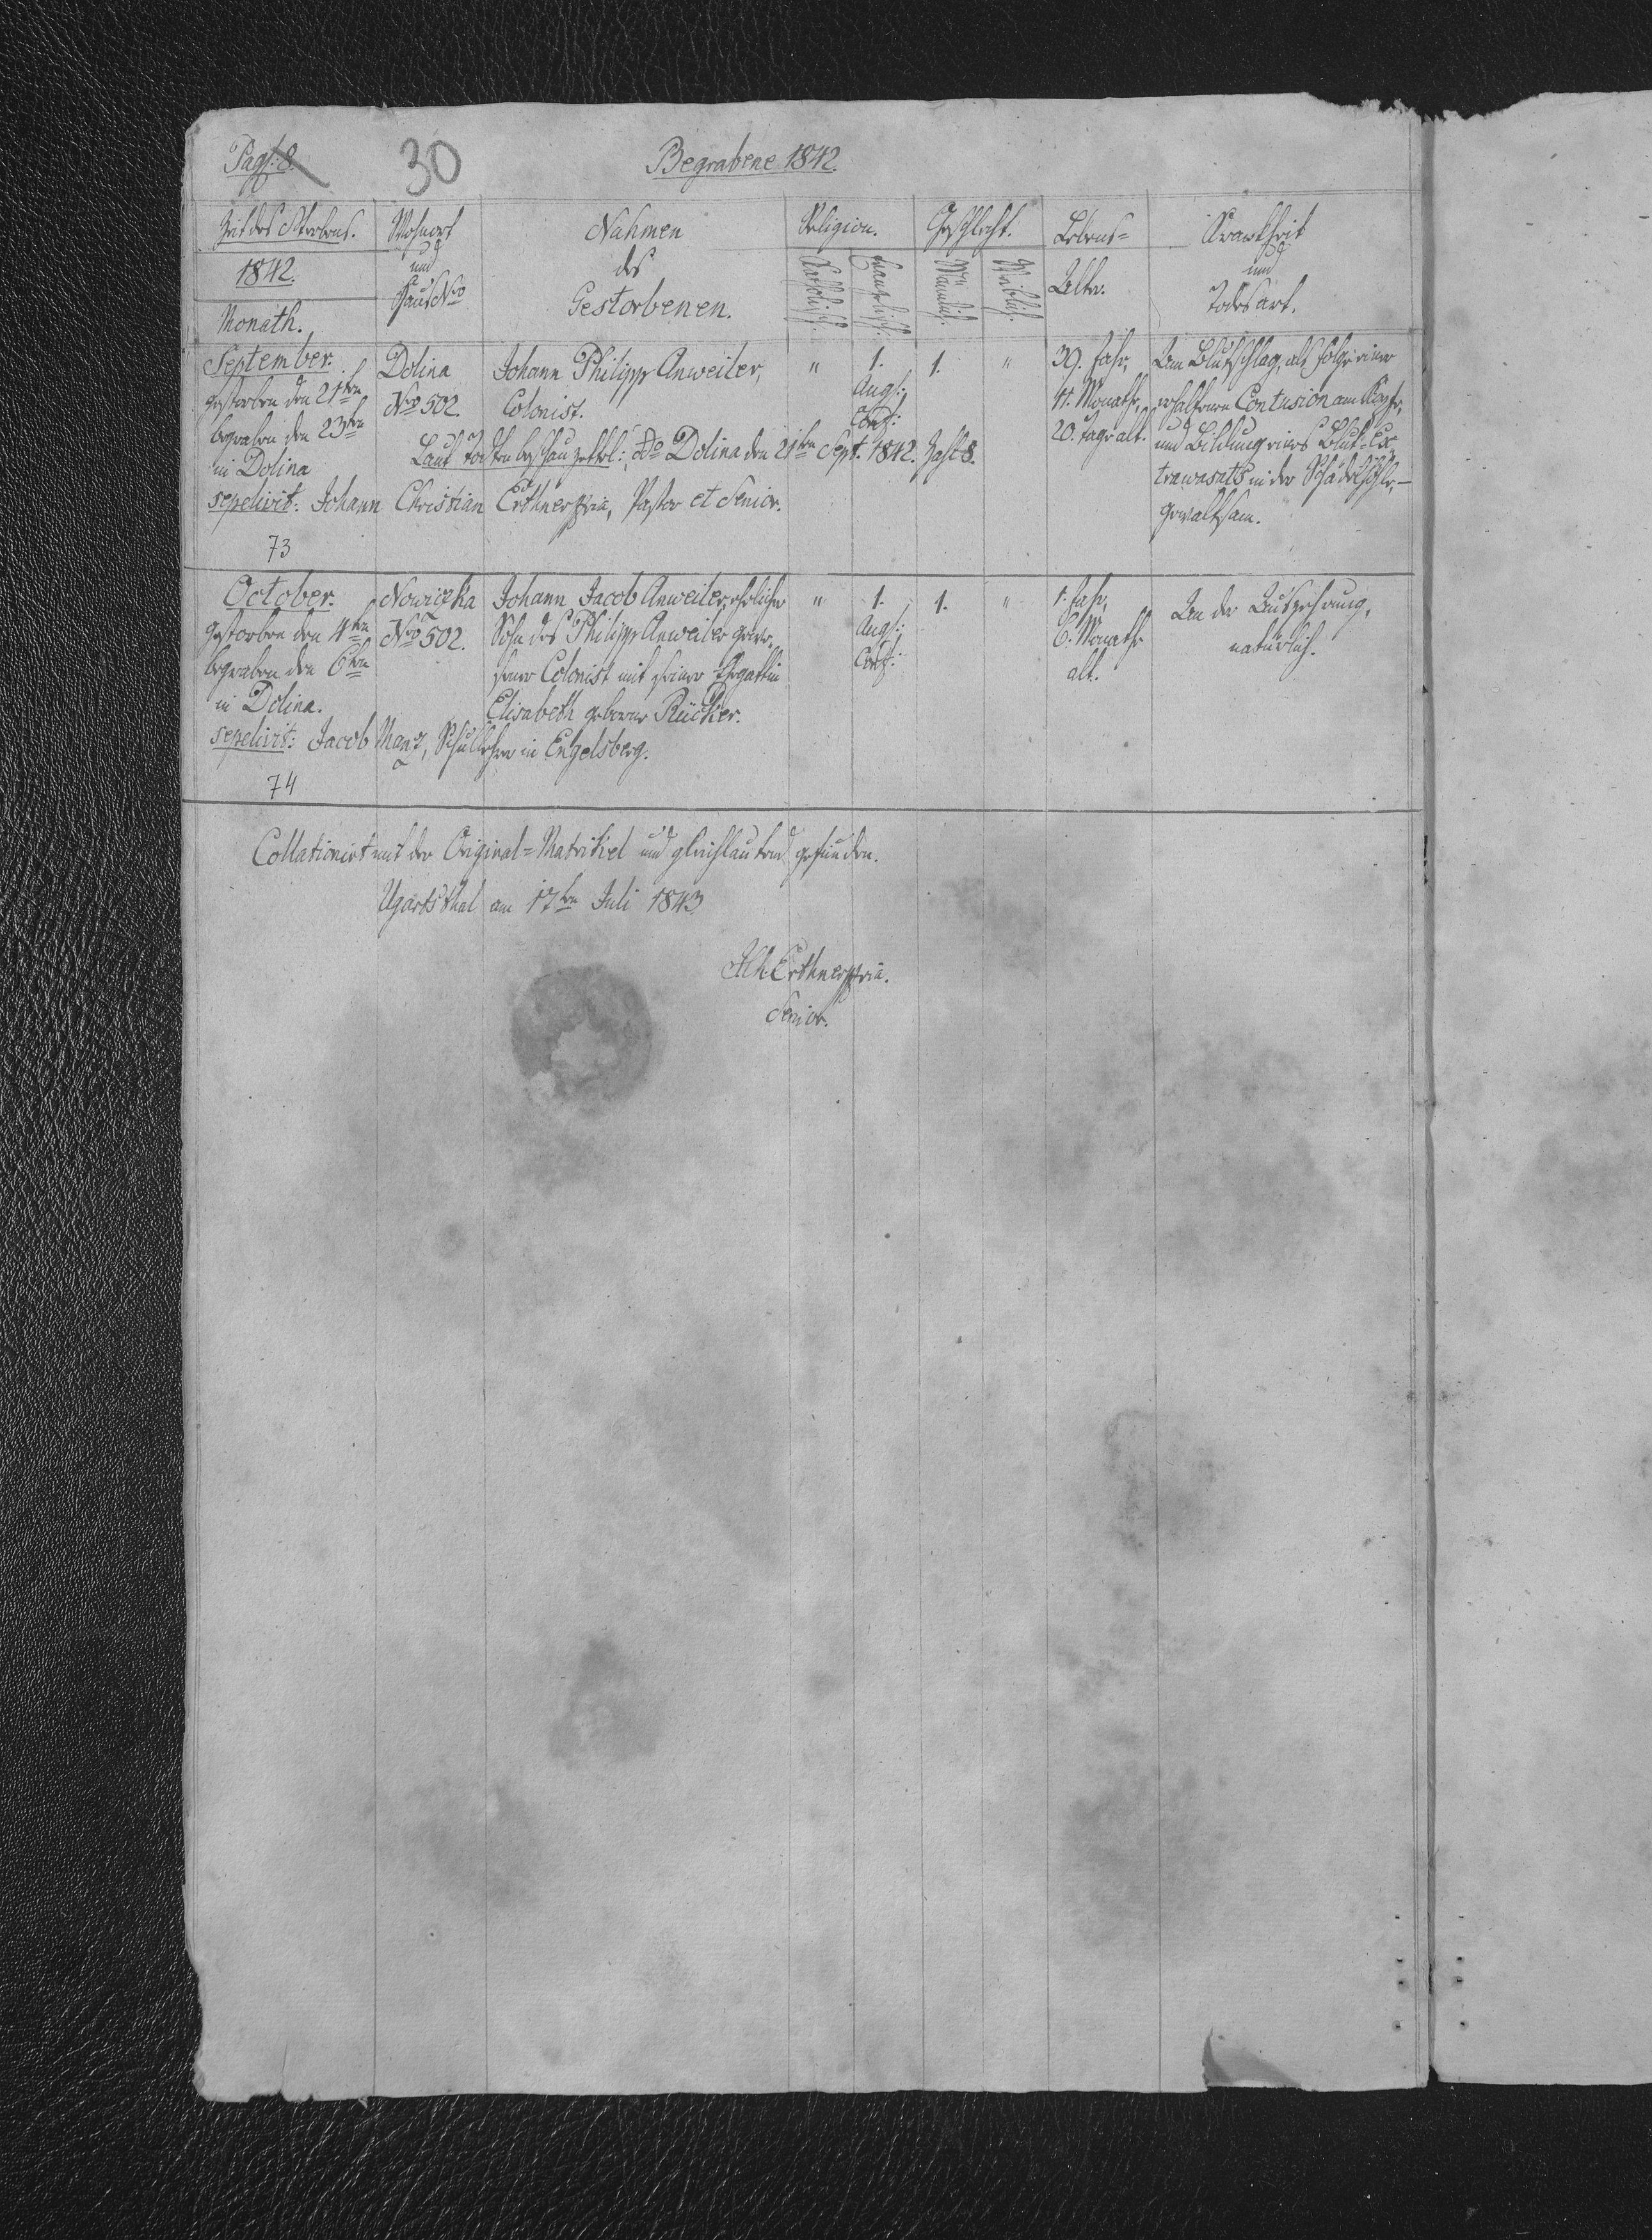 Pag: 8.
30
Begrabene 1842.
Zeit des Sterbens.
1842.
Monath.
Wohnort
und
Haus No
Nahmen
des
Gestorbenen.
Religion.
Katholisch.
Evangelisch.
Geschlecht.
Männlich.
Weiblich.
Lebens=
Alter.
Krankheit
und
Todesart.
September.
gestorben den 21ten
begraben den 23ten
in Dolina
Dolina
No 502.
Johann Philipp Anweiler,
Colonist.
"
1.
Augs:
Conf:
1.
"
39. Jahr,
11. Monathe,
20. Tage alt.
Am Blutschlag, als Folge einer
erhaltenen Contusion am Kopfe,
und Bildung eines Blut-Ex
trawasats in der Schädelhöhle, –
gewaltsam.
Laut Todtenbeschauzettel: dd Dolina den 21ten Sept. 1842. Zahl 8.
sepelivit: Johann Christian Erthner, Pastor et Senior.
73
October.
gestorben den 4ten
begraben den 6ten
in Dolina.
Nowiczka
No 502.
Johann Jacob Anweiler, ehelicher
Sohn des Philipp Anweiler gewe
sener Colonist mit seiner Ehegattin
Elisabeth geborne Rücker.
"
1.
Augs:
Conf:
1.
"
1. Jahr,
6. Monathe
alt.
An der Auszehrung,
natürlich.
sepelivit: Jacob Manz, Schullehrer in Engelsberg.
74
Collationirt mit der Original=Matrikel und gleichlautend gefunden.
Ugartsthal am 17ten Juli 1843
Erthner
Senior.